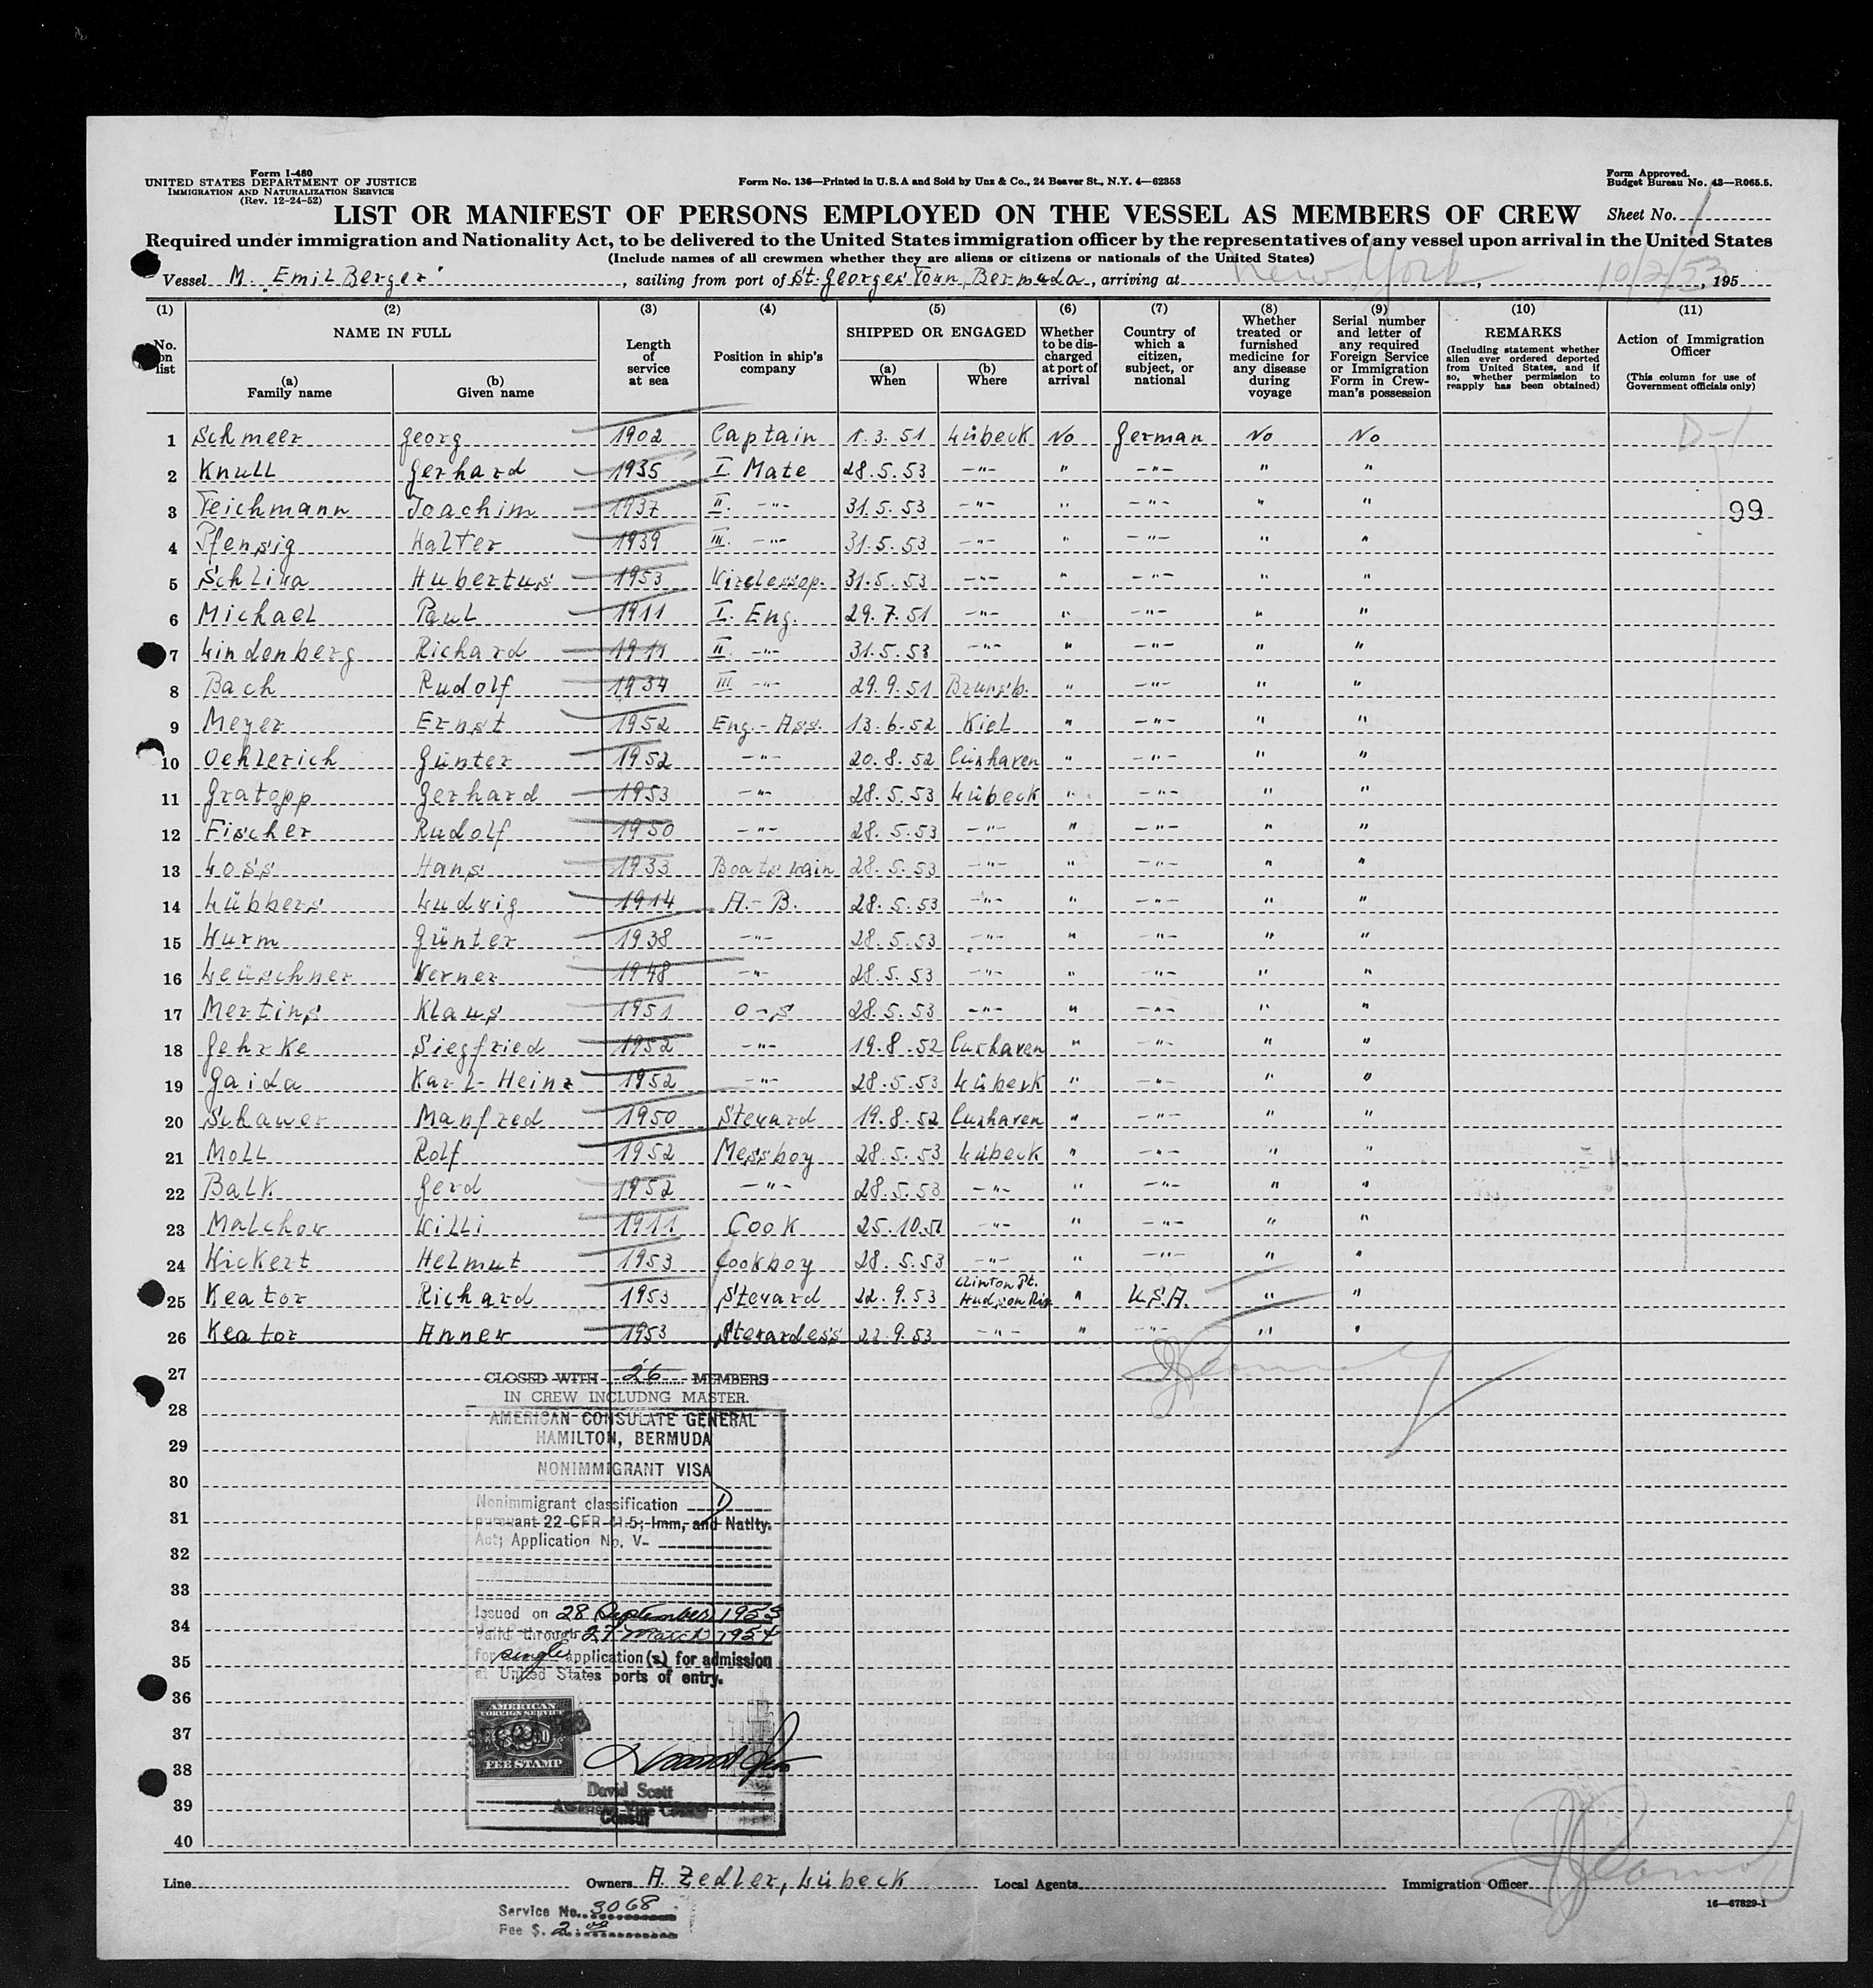 Form I-480
UNITED STATES DEPARTMENT OF JUSTICE
IMMIGRATION AND NATURALIZATION SERVICE
(Rev. 12-24-52)
Form No. 136—Printed in U.S.A and Sold by Unz & Co., 24 Beaver St., N.Y. 4—62353
Form Approved.
Budget Bureau No. 43—R065.5.
LIST OR MANIFEST OF PERSONS EMPLOYED ON THE VESSEL AS MEMBERS OF CREW
Sheet No. 1
Required under immigration and Nationality Act, to be delivered to the United States immigration officer by the representatives of any vessel upon arrival in the United States
(Include names of all crewmen whether they are aliens or citizens or nationals of the United States)
Vessel M. „Emil Berger", sailing from port of St. Georges' Town, Bermuda, arriving at New York, 10/2/53, 195
(1) (2) (3) (4) (5) (6) (7) (8) (9) (10) (11)
No. on list
NAME IN FULL
(a) Family name
(b) Given name
Length of service at sea
Position in ship's company
SHIPPED OR ENGAGED
(a) When
(b) Where
Whether to be discharged at port of arrival
Country of which a citizen, subject, or national
Whether treated or furnished medicine for any disease during voyage
Serial number and letter of any required Foreign Service or Immigration Form in Crewman's possession
REMARKS
(Including statement whether alien ever ordered deported from United States, and if so, whether permission to reapply has been obtained)
Action of Immigration Officer
(This column for use of Government officials only)
1 Schmeer Georg 1902 Captain 1.3.51 Lübeck No German No No D-1
2 Knull Gerhard 1935 I. Mate 28.5.53 -"- " -"- " "
3 Teichmann Joachim 1937 II. -"- 31.5.53 -"- " -"- " " 99
4 Pfensig Walter 1939 III. -"- 31.5.53 -"- " -"- " "
5 Schliwa Hubertus 1953 Wirelessop. 31.5.53 -"- " -"- " "
6 Michael Paul 1911 I. Eng. 29.7.51 -"- " -"- " "
7 Lindenberg Richard 1911 II. -"- 31.5.53 -"- " -"- " "
8 Bach Rudolf 1934 III -"- 29.9.51 Brunsb. " -"- " "
9 Meyer Ernst 1952 Eng.-Ass. 13.6.52 Kiel " -"- " "
10 Oehlerich Günter 1952 -"- 20.8.52 Cuxhaven " -"- " "
11 Gratopp Gerhard 1953 -"- 28.5.53 Lübeck " -"- " "
12 Fischer Rudolf 1950 -"- 28.5.53 -"- " -"- " "
13 Loss Hans 1933 Boatswain 28.5.53 -"- " -"- " "
14 Lübbers Ludwig 1914 A.-B. 28.5.53 -"- " -"- " "
15 Wurm Günter 1938 -"- 28.5.53 -"- " -"- " "
16 Leüschner Werner 1948 -"- 28.5.53 -"- " -"- " "
17 Mertins Klaus 1951 O-S 28.5.53 -"- " -"- " "
18 Gehrke Siegfried 1952 -"- 19.8.52 Cuxhaven " -"- " "
19 Gaida Karl-Heinz 1952 -"- 28.5.53 Lübeck " -"- " "
20 Schawer Manfred 1950 Steward 19.8.52 Cuxhaven " -"- " "
21 Moll Rolf 1952 Messboy 28.5.53 Lübeck " -"- " "
22 Balk Gerd 1952 -"- 28.5.53 -"- " -"- " "
23 Malchow Willi 1911 Cook 25.10.51 -"- " -"- " "
24 Wickert Helmut 1953 Cookboy 28.5.53 -"- " -"- " "
25 Keator Richard 1953 Steward 22.9.53 Clinton Pt. Hudson Riv. " U.S.A. " "
26 Keator Annew 1953 Stewardess 22.9.53 -"- " -"- " "
27
28
29
30
31
32
33
34
35
36
37
38
39
40
CLOSED WITH 26 MEMBERS
IN CREW INCLUDNG MASTER.
AMERICAN CONSULATE GENERAL
HAMILTON, BERMUDA
NONIMMIGRANT VISA
Nonimmigrant classification D
pursuant 22 CFR 41.5; Imm, and Natlty.
Act; Application No. V-
Issued on 28 September 1953
Valid through 27 March 1954
for single application(s) for admission
at United States ports of entry.
AMERICAN
FOREIGN SERVICE
FEE STAMP
David Scott
American Vice Consul
Consul
Line
Owners A. Zedler, Lübeck
Local Agents
Immigration Officer
Service No. 3068
Fee $ 2.00
16—67829-1